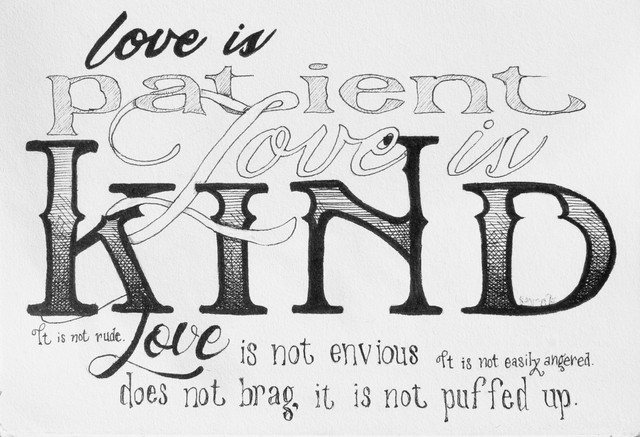 love is
patient
Love is
KIND
It is not rude.
Love is not envious
It is not easily angered.
does not brag, it is not puffed up.